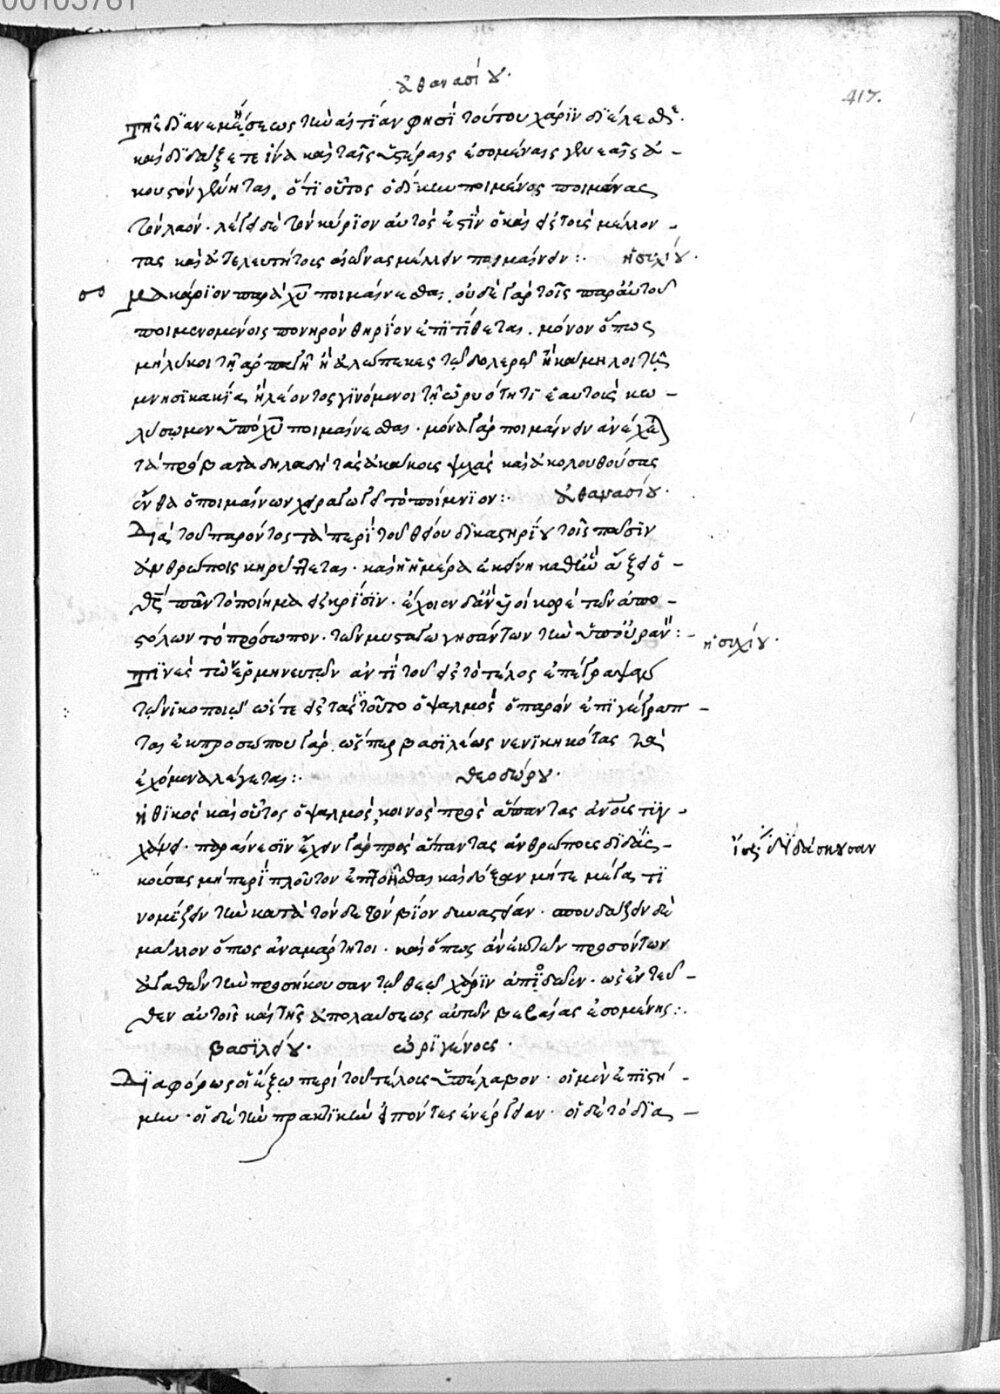 00105761
ἀθανασίου·
417.
τῆς διανεμήσεως τὴν αἰτίαν φησὶ τούτου χάριν διέλεσθε·
καὶ διδάξετε ἵνα καὶ ταῖς ὑστέραις ἐσομέναις γενεαῖς ἀ-
κουστὸν γένηται, ὅτι οὗτος ὁ δίκην ποιμένος ποιμάνας
τὸν λαόν· λέγει δὲ τὸν κύριον αὐτός ἐστιν ὁ καὶ εἰς τοὺς μέλλον-
τας καὶ ἀτελευτήτους αἰῶνας μέλλων ποιμαίνειν:· ἡσυχίου·
μακάριον παρὰ χυ ποιμαίνεσθαι, οὐδὲ γὰρ τοῖς παρ' αὐτοῦ
ποιμενομένοις πονηρὸν θηρίον ἐπιτίθεται· μόνον ὅπως
μὴ λύκοι τῇ ἁρπαγῇ ἢ ἀλώπεκες τῷ δολερῷ ἢ κάμηλοι τῇ
μνησικακίᾳ ἢ λέοντες γινόμενοι τῇ ὠμότητι ἑαυτοὺς κω-
λύσωμεν ὑπὸ χυ ποιμαίνεσθαι· μόνα γὰρ ποιμαίνειν ἀνέχεται
τὰ πρόβατα δηλαδὴ τὰς ἀκάκους ψυχὰς καὶ ἀκολουθούσας
ἔνθα ὁ ποιμαίνων χειραγωγεῖ τὸ ποίμνιον:· ἀθανασίου·
Διὰ τοῦ παρόντος τὰ περὶ τοῦ θείου δικαστηρίου τοῖς πᾶσιν
ἀνθρώποις κηρύττεται· καὶ ἡ ἡμέρα ἐκείνη καθ' ἣν ἄξει ὁ
θς πᾶν τὸ ποίημα εἰς κρίσιν· ἔχοιεν δ' ἂν οἱ κορὲ τῶν ἀπο-
στόλων τὸ πρόσωπον· τῶν μυσταγωγησάντων τὴν ὑπ' οὐρανόν:- ἡσυχίου·
τινὲς τῶν ἑρμηνευτῶν ἀντὶ τοῦ εἰς τὸ τέλος ἐπέγραψαν
τῷ νικοποιῷ ὥστε εἰς τοῦτο ὁ ψαλμὸς ὁ παρὼν ἐπιγέγραπ-
ται ἐκ προσώπου γὰρ ὥσπερ βασιλέως νενικηκότος τὰ
ἐχόμενα λέγεται:· θεοδώρου·
ἠθικὸς καὶ οὗτος ὁ ψαλμός, κοινὸς πρὸς ἅπαντας ἀνους τυγ-
χάνει· παραίνεσιν ἔχων γὰρ πρὸς ἅπαντας ἀνθρώπους διδάς-
κούσας μὴ περὶ πλοῦτον ἐπτοῆσθαι καὶ δόξαν μήτε μέγα τι
νομίζειν τὴν κατὰ τόνδε τὸν βίον δυναστείαν· σπουδάζειν δὲ
μᾶλλον ὅπως ἀναμάρτητοι· καὶ ὅπως ἂν ἐκ τῶν προσόντων
ἀγαθῶν τὴν προσήκουσαν τῷ θεῷ χάριν ἀποδῶεν· ὡς ἐντεῦ-
θεν αὐτοῖς καὶ τῆς ἀπολαύσεως αὐτῶν βεβαίας ἐσομένης:·
ἴσως διδάσκουσαν
βασιλείου· ὠριγένους·
Διαφόρως οἱ ἔξω περὶ τοῦ τέλους ὑπέλαβον· οἱ μὲν ἐπιστή-
μην· οἱ δὲ τὴν πρακτικὴν εἰπόντες ἐνέργειαν· οἱ δὲ τὸ δια-